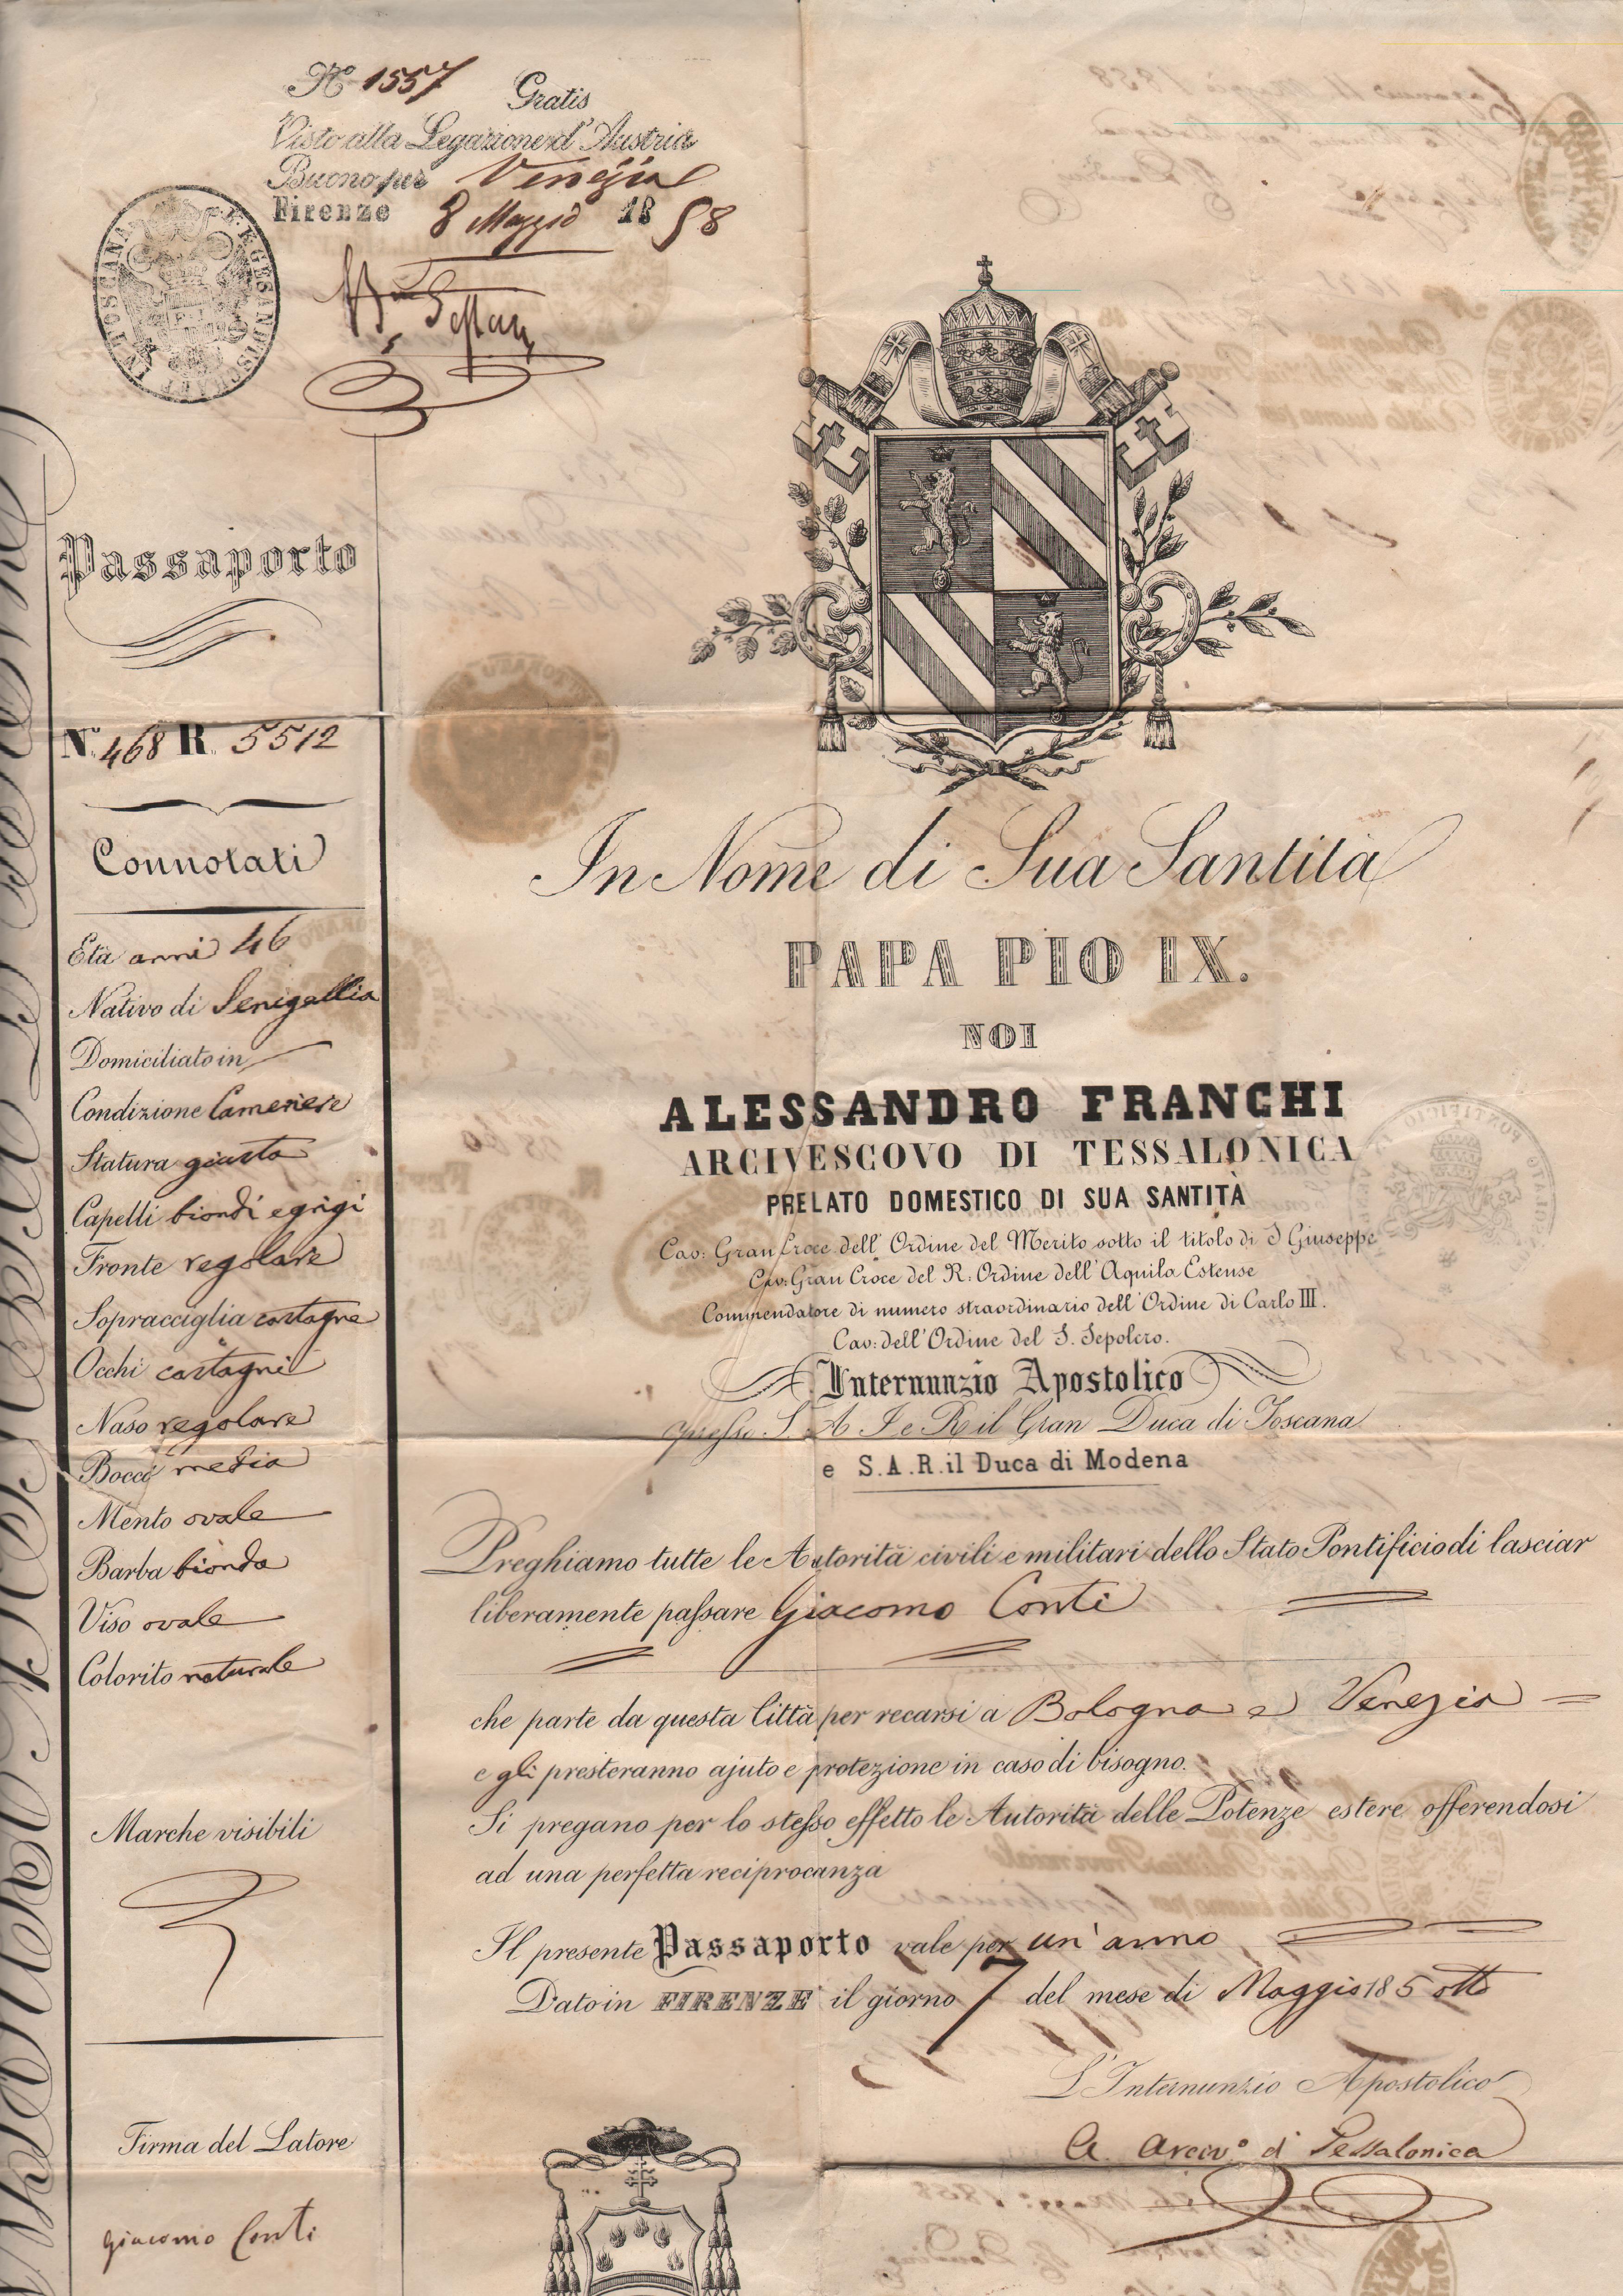 No 1557 Gratis
Visto alla Legazione d'Austria
Buono per Venezia
Firenze 8 Maggio 1858
Passaporto
N. 468 R. 5512
Connotati
Età anni 46
Nativo di Senigallia
Domiciliato in
Condizione Cameriere
Statura giusta
Capelli biondi e grigi
Fronte regolare
Sopracciglia castagne
Occhi castagni
Naso regolare
Bocca media
Mento ovale
Barba bionda
Viso ovale
Colorito naturale
Marche visibili
Firma del Latore
Giacomo Conti
In Nome di Sua Santità
PAPA PIO IX.
NOI
ALESSANDRO FRANCHI
ARCIVESCOVO DI TESSALONICA
PRELATO DOMESTICO DI SUA SANTITÀ
Cav: Gran Croce dell' Ordine del Merito sotto il titolo di S Giuseppe
Cav: Gran Croce del R: Ordine dell'Aquila Estense
Commendatore di numero straordinario dell'Ordine di Carlo III.
Cav: dell'Ordine del S. Sepolcro.
Internunzio Apostolico
presso S. A I e R il Gran Duca di Toscana
e S.A.R. il Duca di Modena
Preghiamo tutte le Autorità civili e militari dello Stato Pontificio di lasciar
liberamente passare Giacomo Conti
che parte da questa Città per recarsi a Bologna e Venezia
e gli presteranno ajuto e protezione in caso di bisogno.
Si pregano per lo stesso effetto le Autorità delle Potenze estere offerendosi
ad una perfetta reciprocanza
Il presente Passaporto vale per un' anno
Dato in FIRENZE il giorno 7 del mese di Maggio 185 otto
L'Internunzio Apostolico
A. Arciv.o di Tessalonica